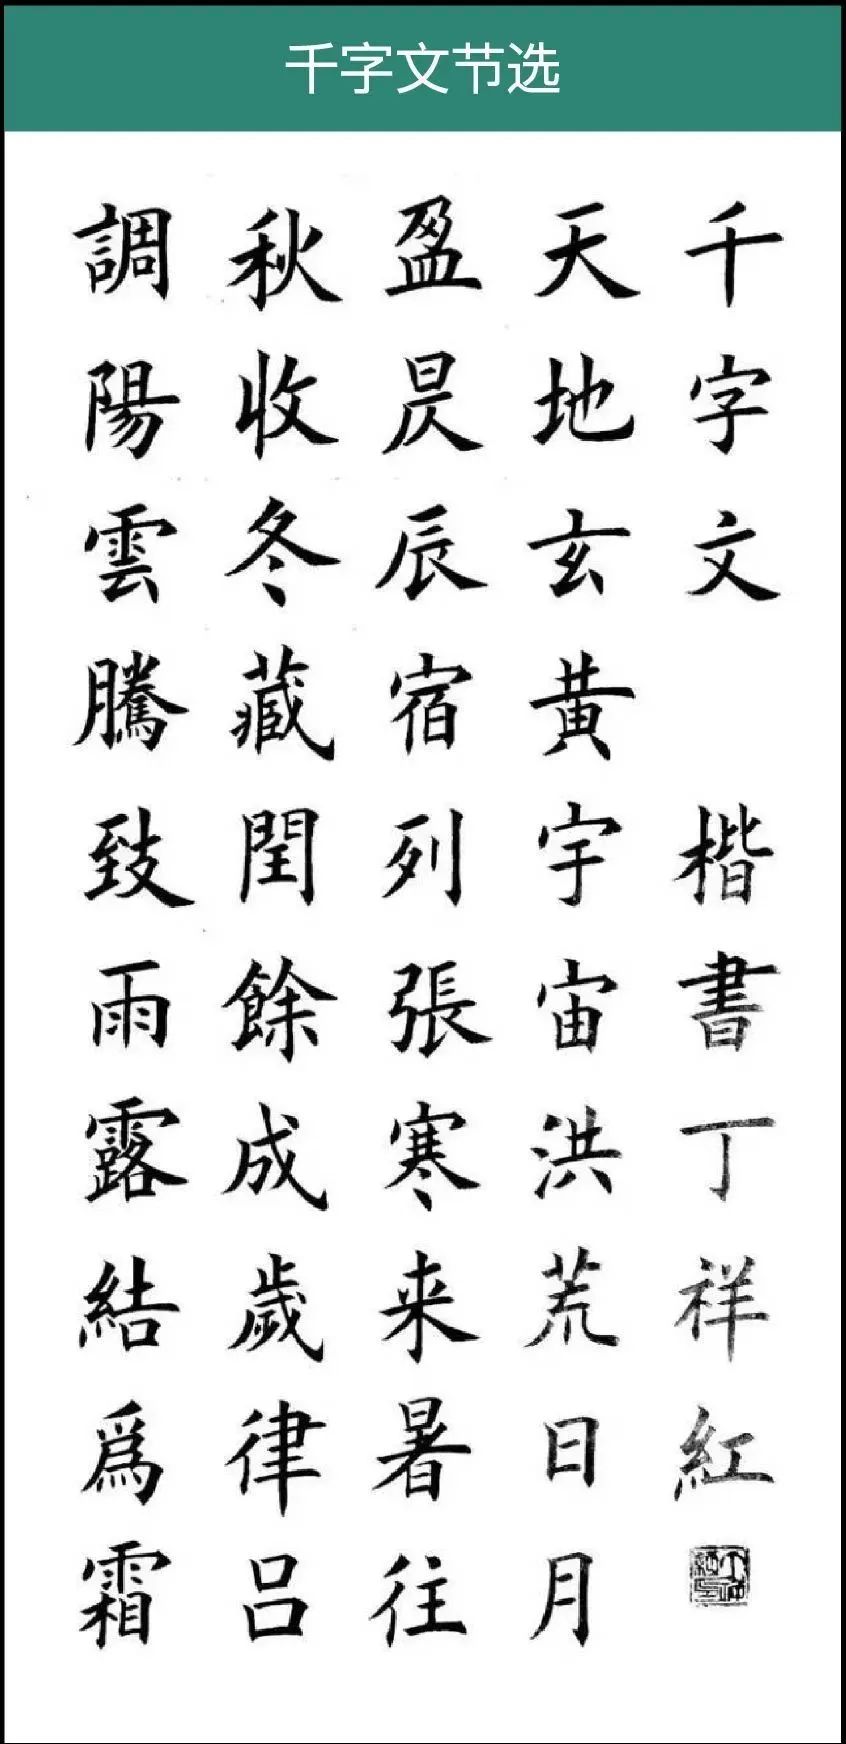 千字文节选
千字文 楷書丁祥紅
天地玄黄宇宙洪荒日月
盈昃辰宿列張寒来暑往
秋收冬藏閏餘成歲律吕
調陽雲騰致雨露結爲霜